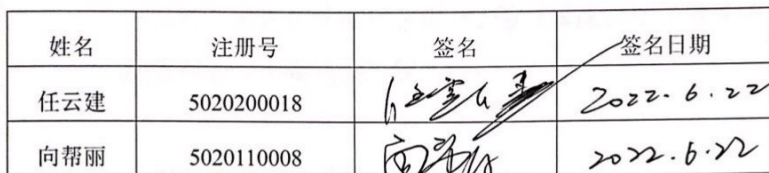 姓名 注册号 签名 签名日期
任云建 5020200018 2022.6.22
向帮丽 5020110008 2022.6.22